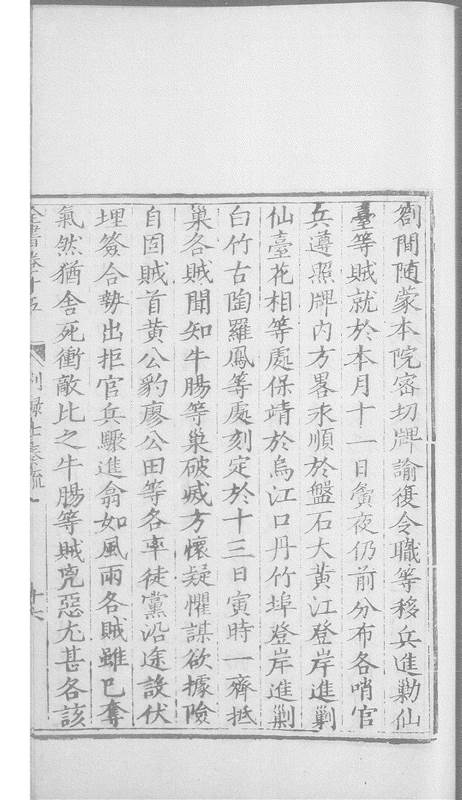 劄間隨蒙本院密切牌諭復令職等移兵進勦仙
臺等賊就於本月十一日夤夜仍前分布各哨官
兵遵照牌內方畧永順於盤石大黃江登岸進剿
仙臺花相等處保靖於烏江口丹竹埠登岸進剿
白竹古陶羅鳳等處刻定於十三日寅時一齊抵
巢各賊聞知牛腸等巢破滅方懷疑懼謀欲據險
自固賊首黃公豹廖公田等各率徒黨沿途設伏
埋簽合勢出拒官兵驟進翕如風雨各賊雖已奪
氣然猶舍死衝敵比之牛腸等賊兇惡尤甚各該
全書卷十五 別錄七奏疏